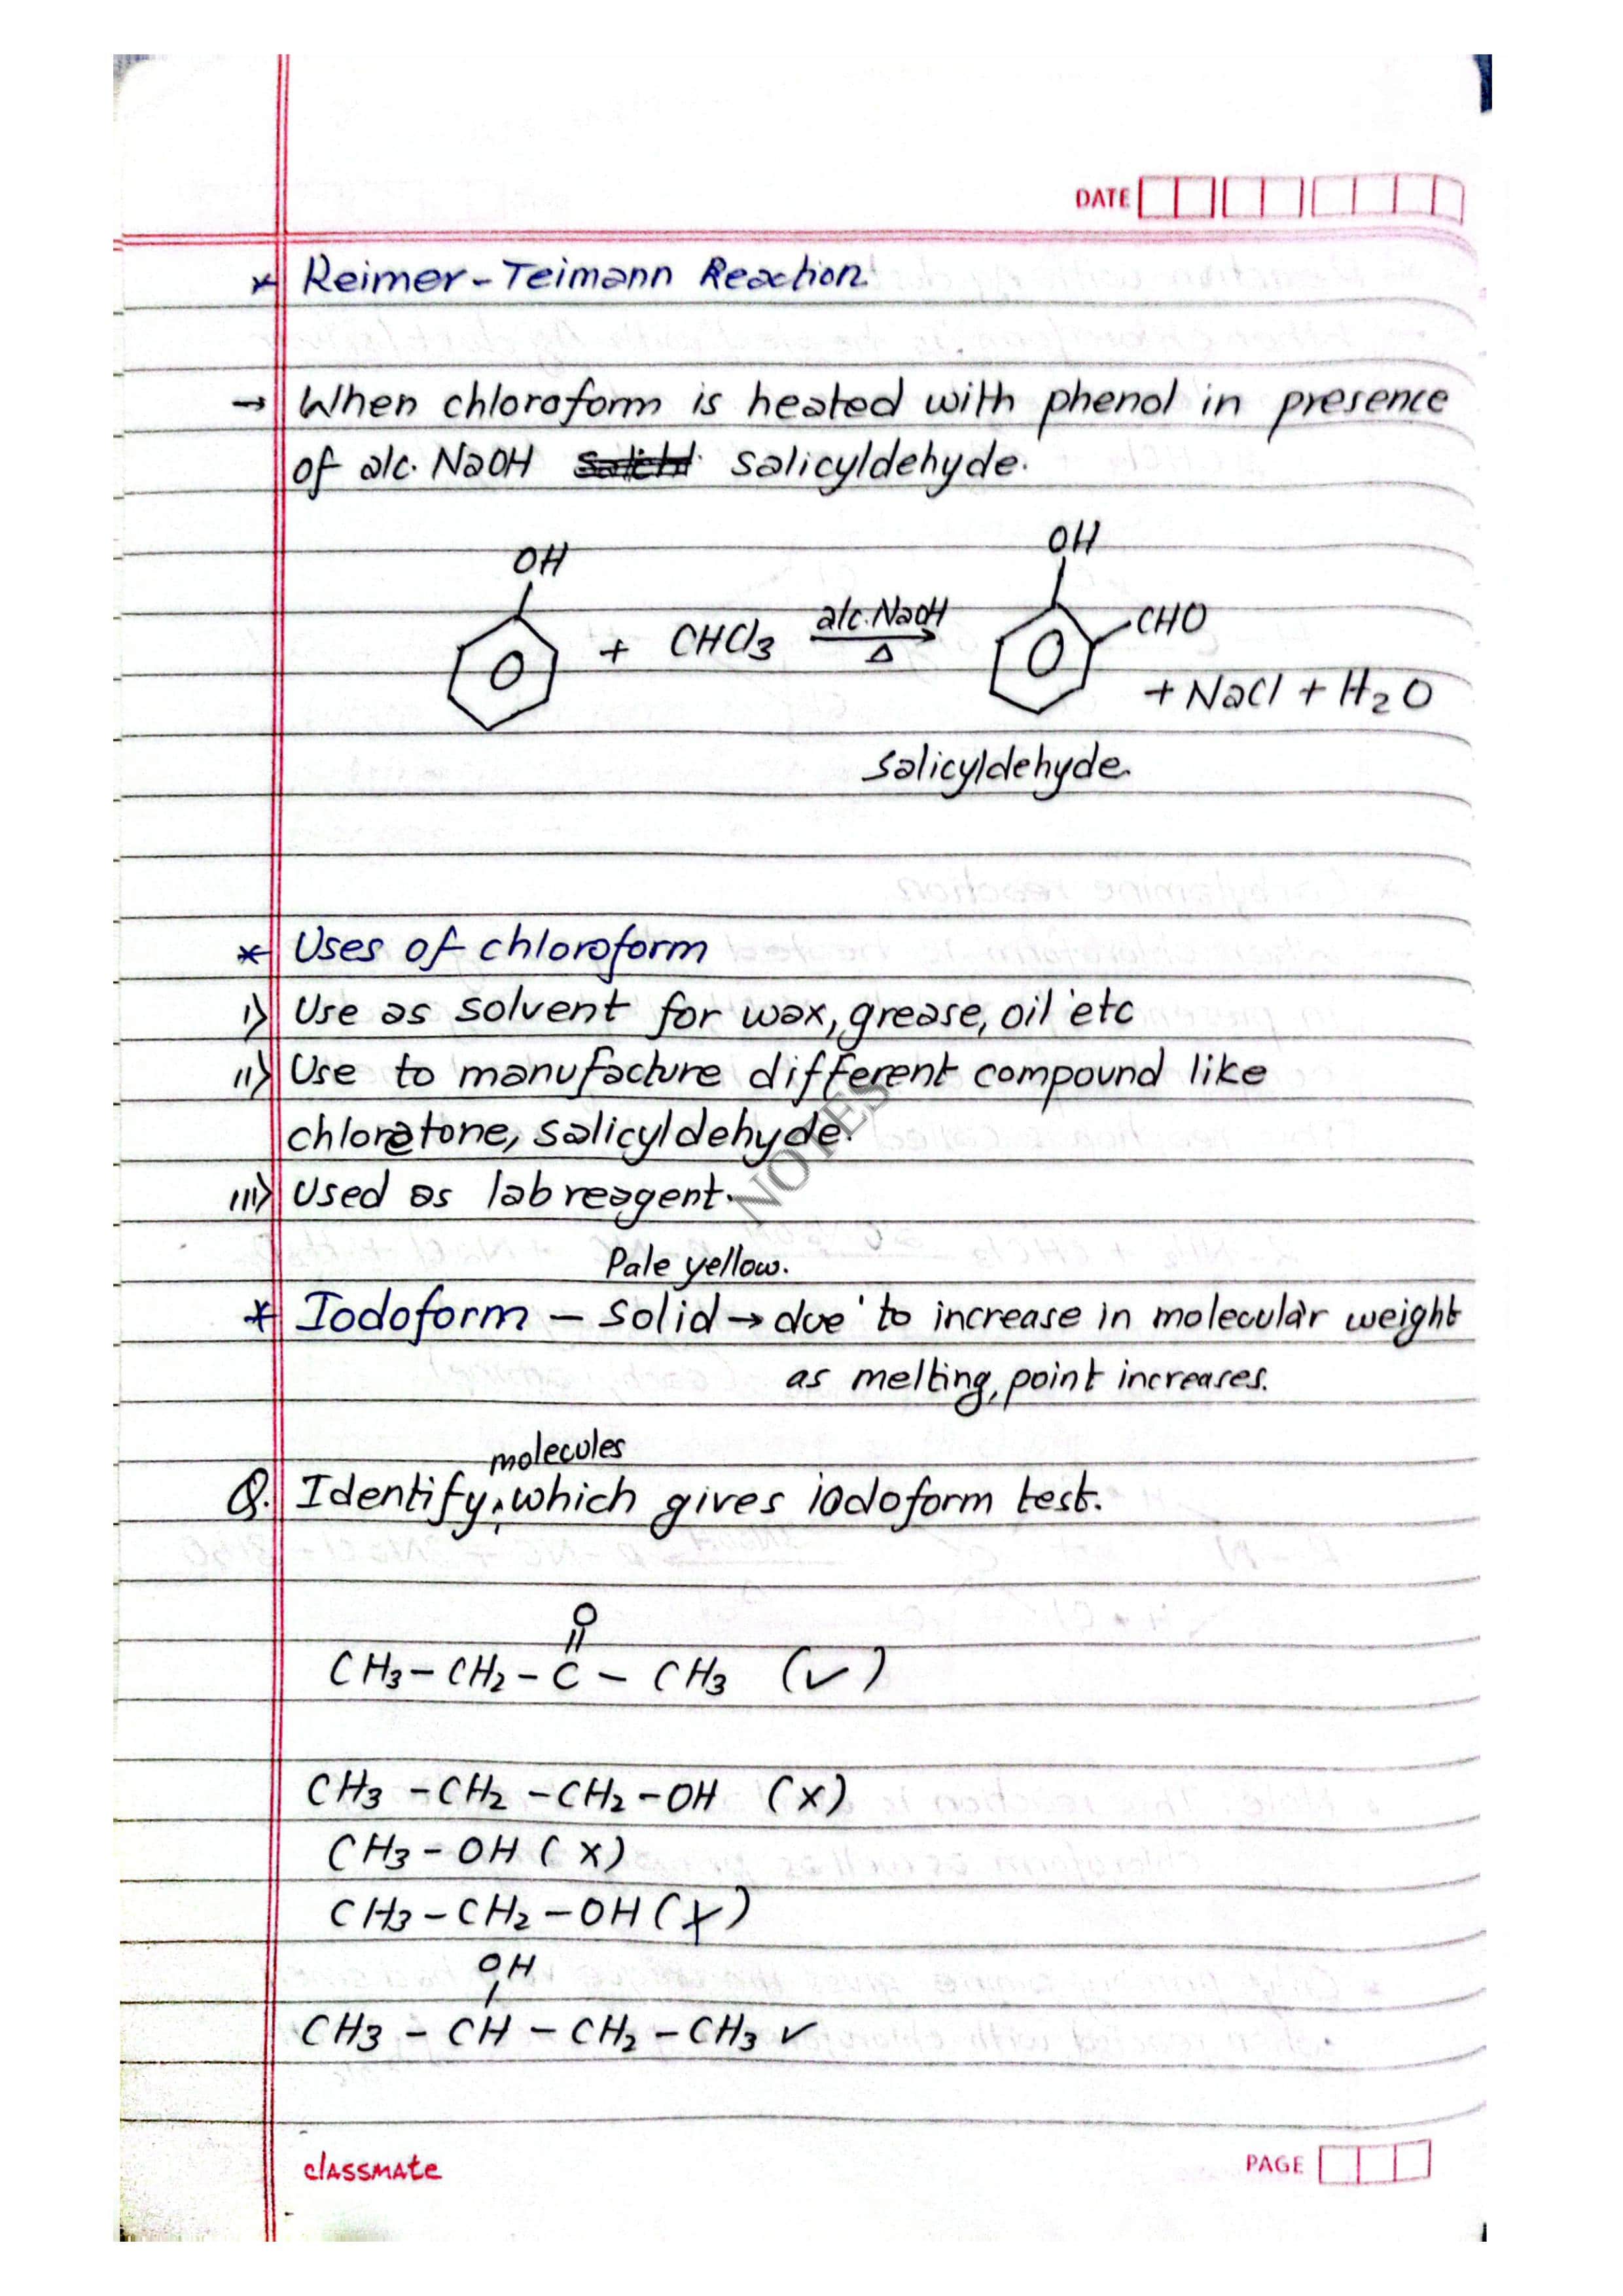 DATE
* Reimer-Teimann Reaction.
→ When chloroform is heated with phenol in presence
of alc. NaOH salicyldehyde.
OH OH
+ CHCl3 alc.NaOH Δ CHO
+ NaCl + H2O
Salicyldehyde.
* Uses of chloroform
i) Use as solvent for wax, grease, oil etc
ii) Use to manufacture different compound like
chloretone, salicyldehyde.
iii) Used as lab reagent.
NOTES
Pale yellow.
* Iodoform – Solid → due to increase in molecular weight
as melting, point increases.
molecules
Q. Identify, which gives iodoform test.
O
CH3 – CH2 – C – CH3 (✓)
CH3 – CH2 – CH2 – OH (x)
CH3 – OH (x)
CH3 – CH2 – OH (x)
OH
CH3 – CH – CH2 – CH3 ✓
classmate
PAGE